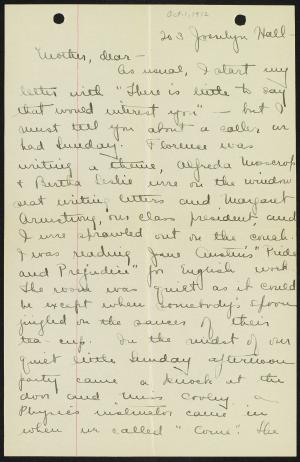 Oct. 1, 1912
203 Josselyn Hall -
Mother, dear -
As usual, I start my
letter with "There is little to say
that would interest you" - but I
must tell you about a caller we
had Sunday. Florence was
writing a theme, Alfreda Mosscrop
+ Bertha Leslie were on the window
seat writing letters and Margaret
Armstrong, our class president, and
I were sprawled out on the couch.
I was reading Jane Austin's "Pride
and Prejudice" for English work.
The room was quiet as it could
be except when somebody's spoon
jingled on the saucer of their
tea-cup. In the midst of our
quiet little Sunday afternoon
party came a knock at the
door and Miss Cowley a
Physics instructor came in
when we called "Come". She